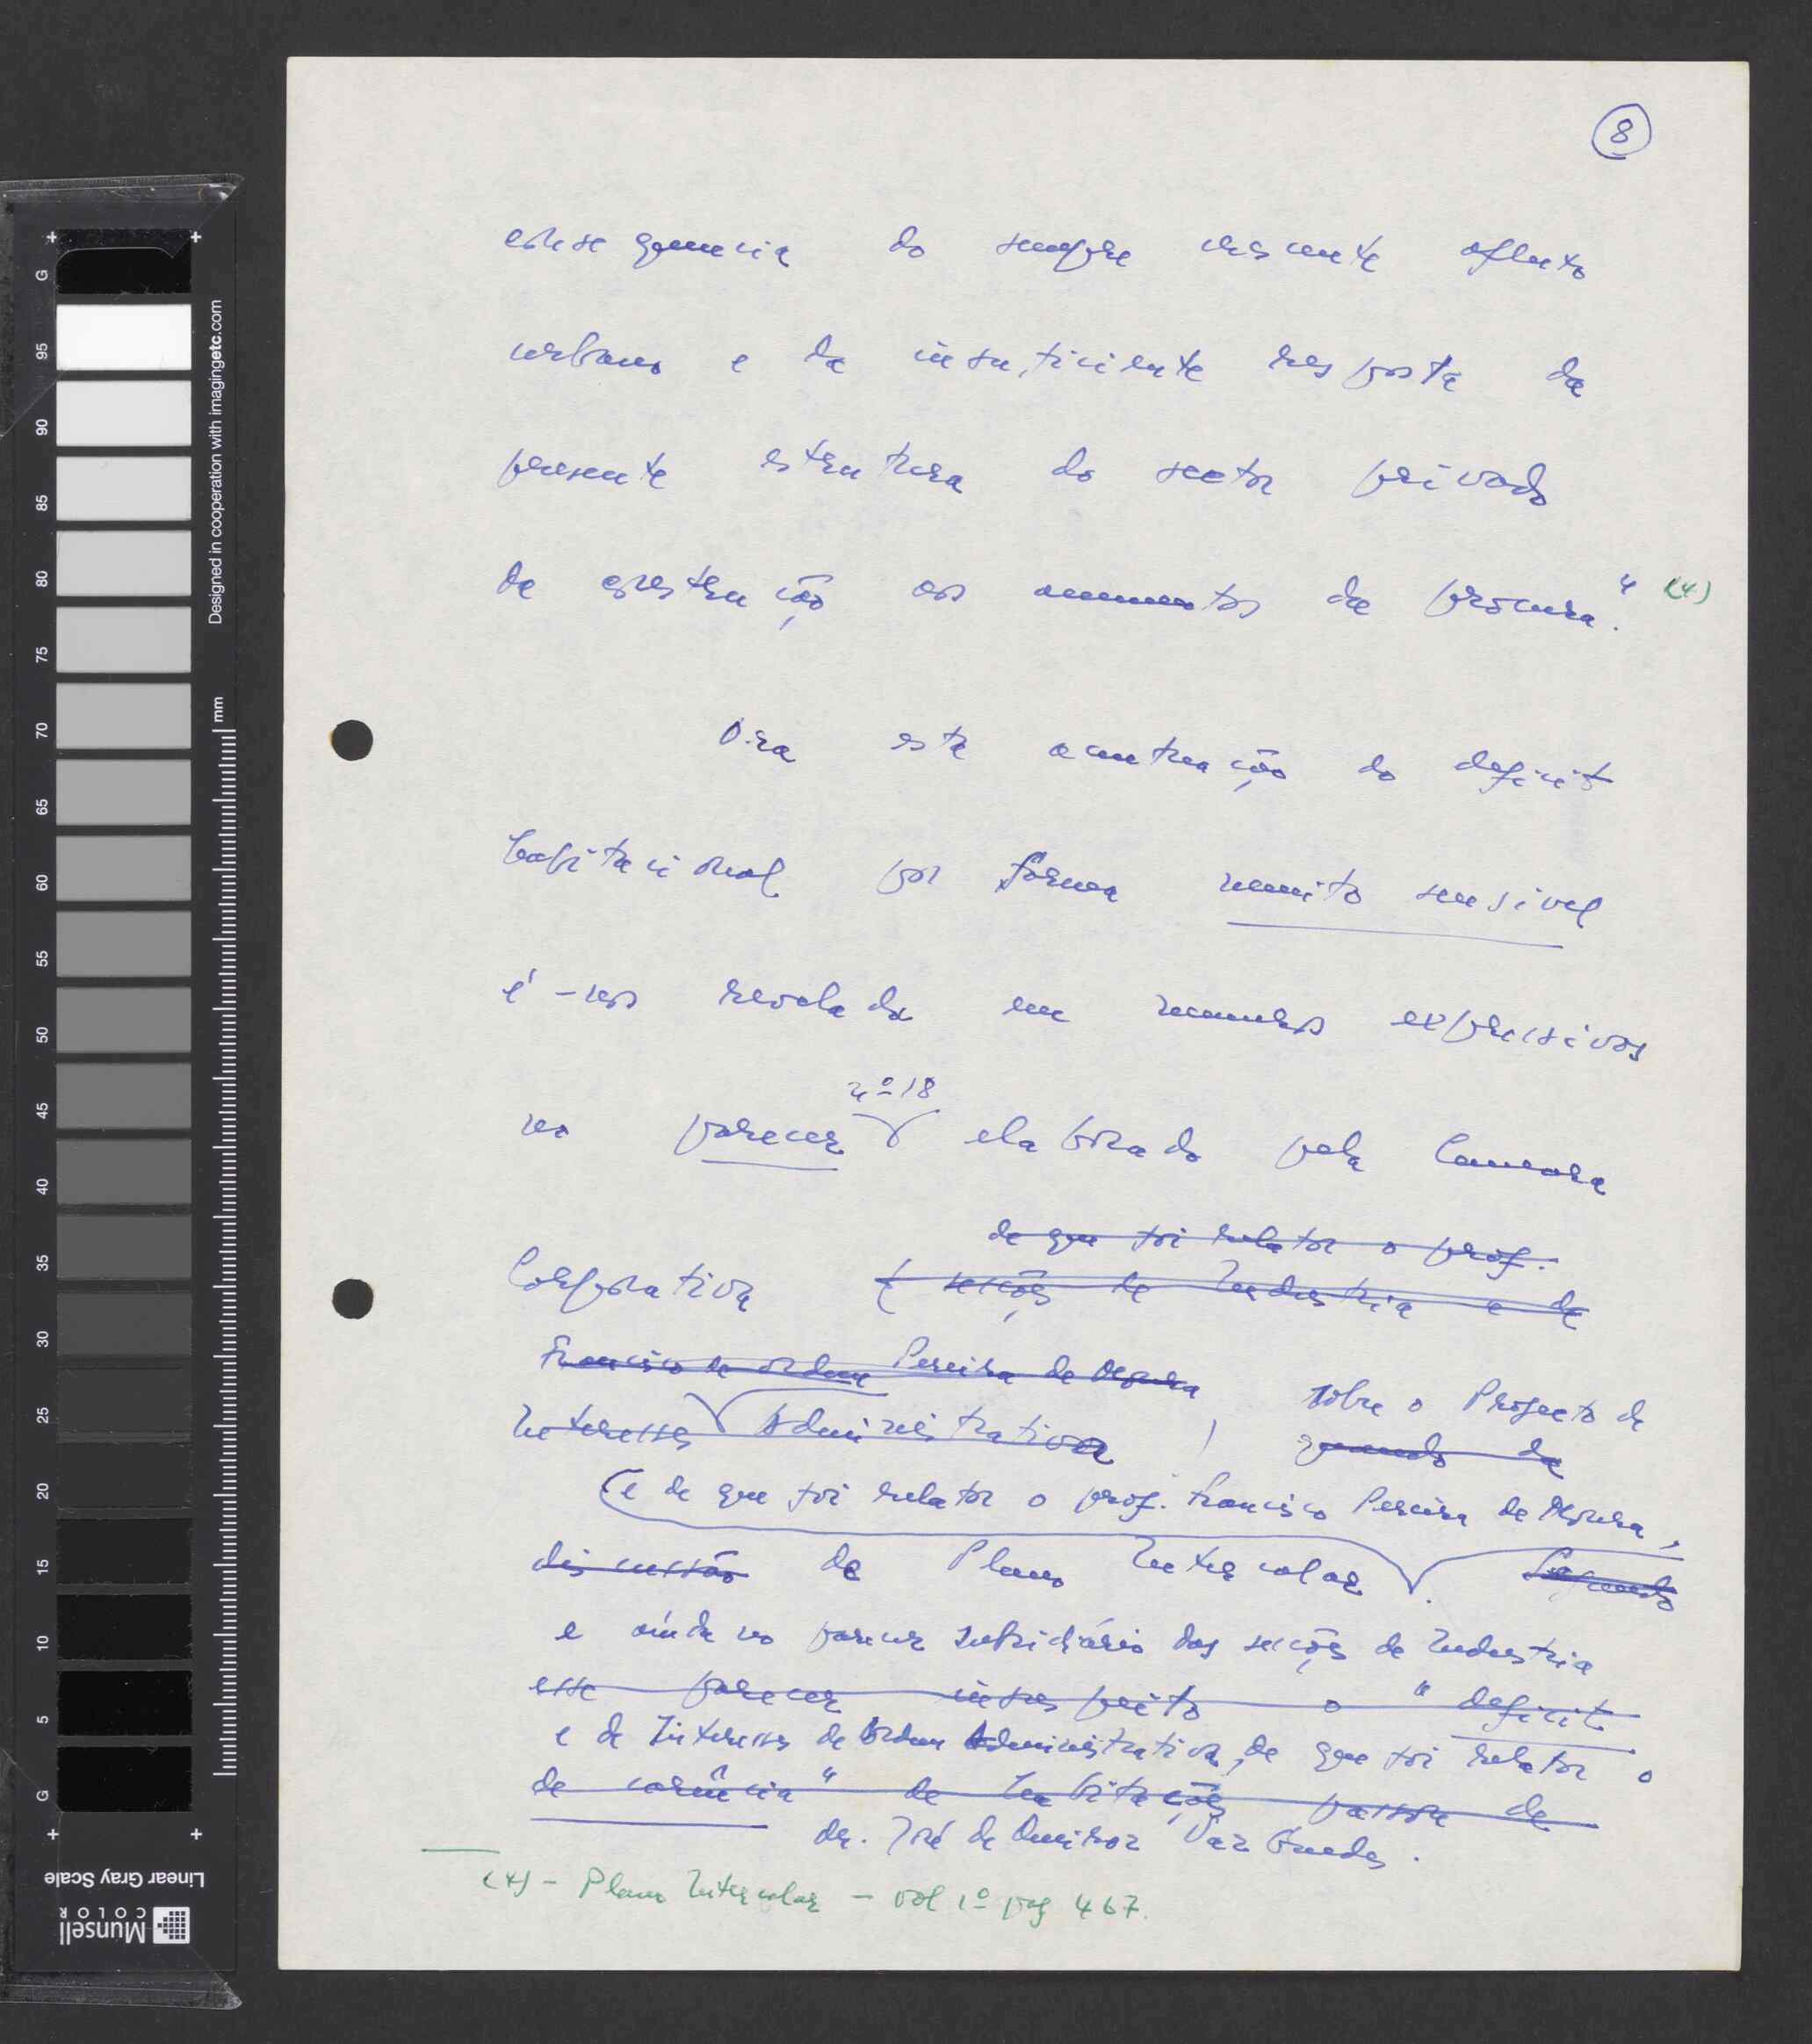 8
consequencia do sempre crescente afluxo
urbano e da insuficiente resposta da
presente estrutura do sector privado
de construção aos aumentos da procura." (4)
Ora esta acentuação do deficit
habitacional por forma muito sensivel
é-nos revelada em numeros expressivos
no parecer nº 18 elaborado pela Camara
de que foi relator o prof.
Corporativa (secções de Industria e de
Francisco de ordem Pereira de Moura
Interesses Administrativa) sobre o Projecto de
quando da
(e de que foi relator o prof. Francisco Pereira de Moura,
discussão de Plano Intercalar. Segundo
e ainda no parecer subsidiário das secções de Industria
esse parecer insuspeito o "deficit
e de Interesses de Ordem Administrativa, de que foi relator o
de carência" de habitações passou de
dr. José de Queiroz Vaz Guedes.
(4) - Plano Intercalar - vol 1º pag 467.
G
95
90
85
80
75
70
65
60
55
50
45
40
35
30
25
20
15
10
5
G
Designed in cooperation with imagingetc.com
mm
Linear Gray Scale
Munsell
COLOR